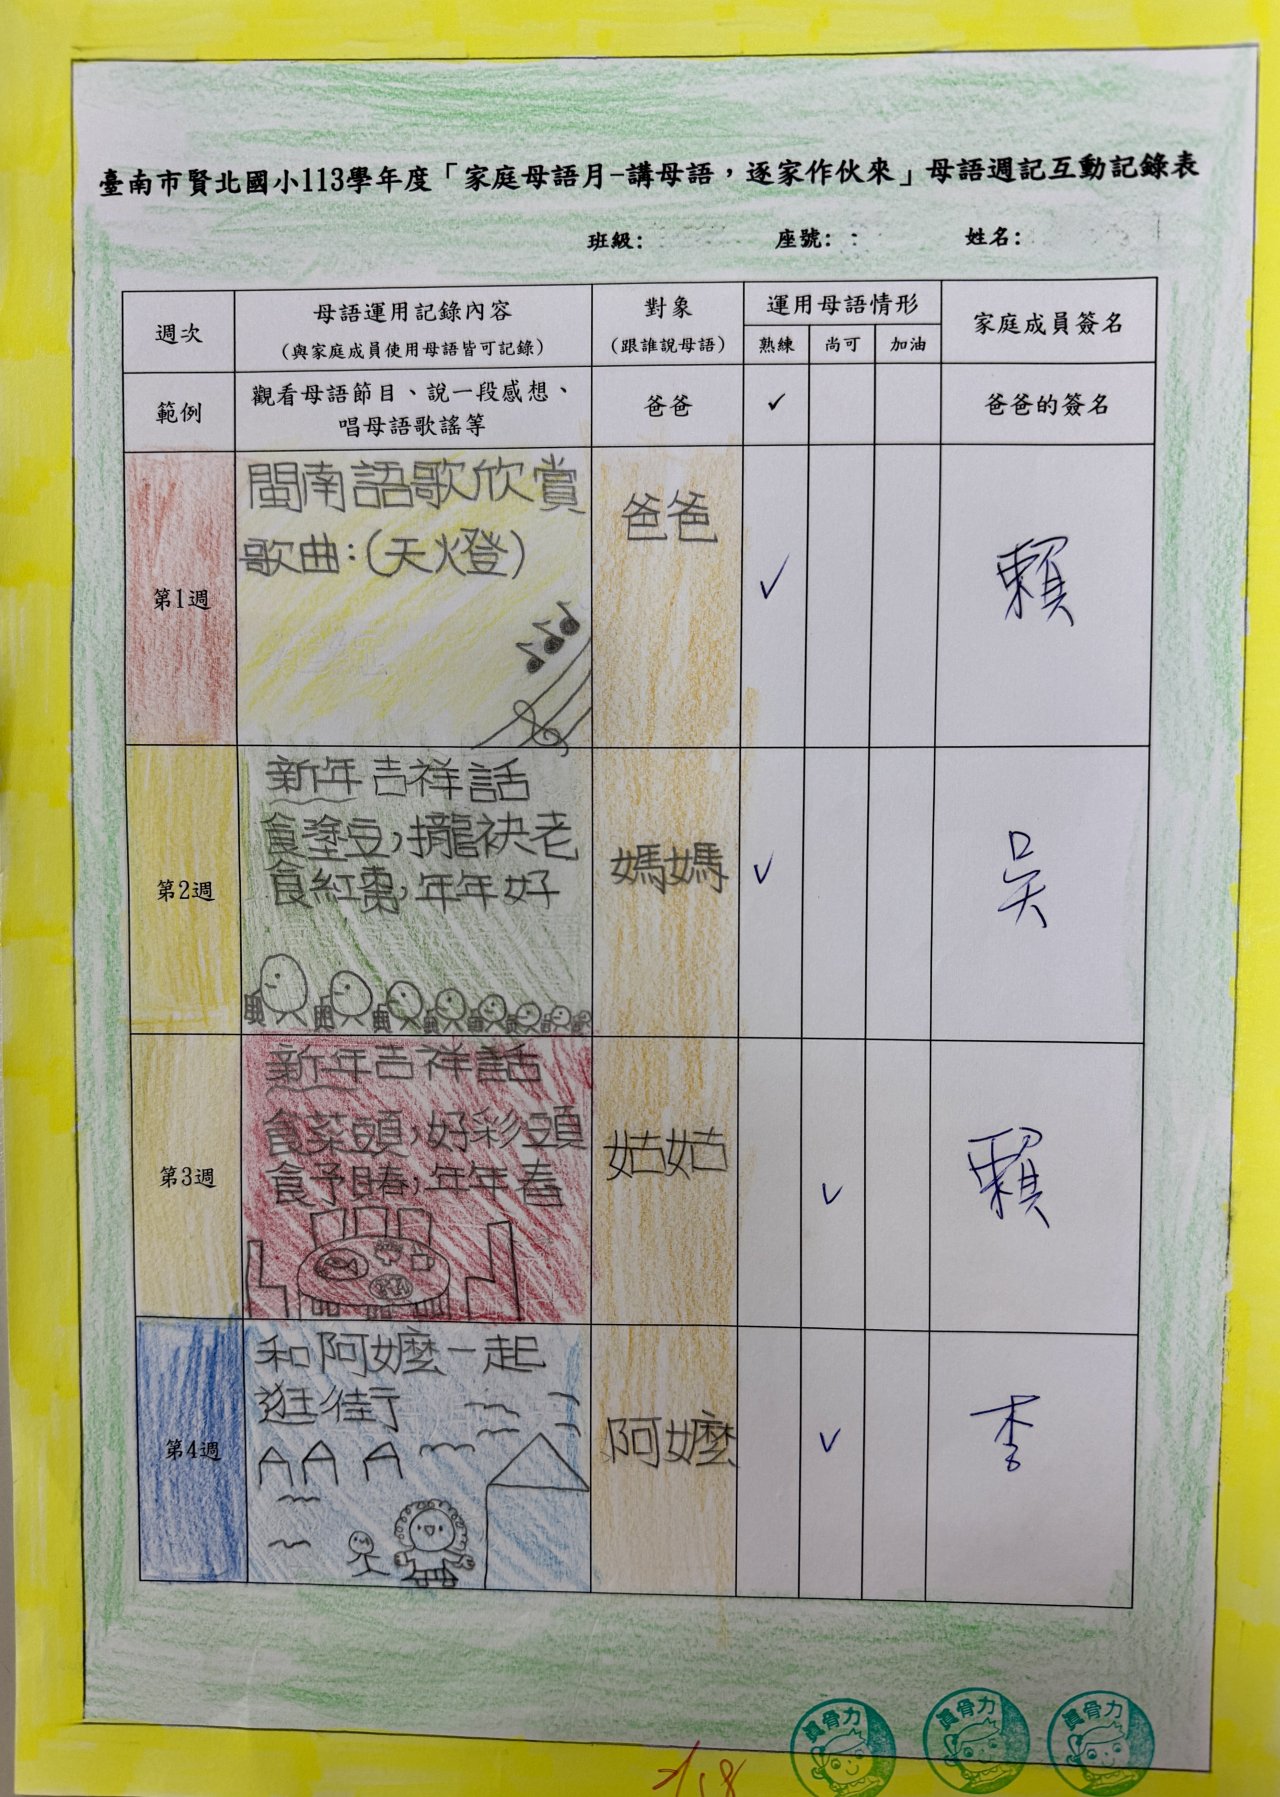 臺南市賢北國小113學年度「家庭母語月-講母語，逐家作伙來」母語週記互動記錄表
班級：
座號：
姓名：
週次
母語運用記錄內容
（與家庭成員使用母語皆可記錄）
對象
（跟誰說母語）
運用母語情形
熟練
尚可
加油
家庭成員簽名
範例
觀看母語節目、說一段感想、
唱母語歌謠等
爸爸
✓
爸爸的簽名
第1週
閩南語歌欣賞
歌曲：(天燈)
爸爸
✓
賴
第2週
新年吉祥話
食塗豆，攏袂老
食紅棗，年年好
媽媽
✓
吳
第3週
新年吉祥話
食菜頭，好彩頭
食予賰，年年春
姑姑
✓
賴
第4週
和阿嬤一起
逛街
阿嬤
✓
李
真骨力
真骨力
真骨力